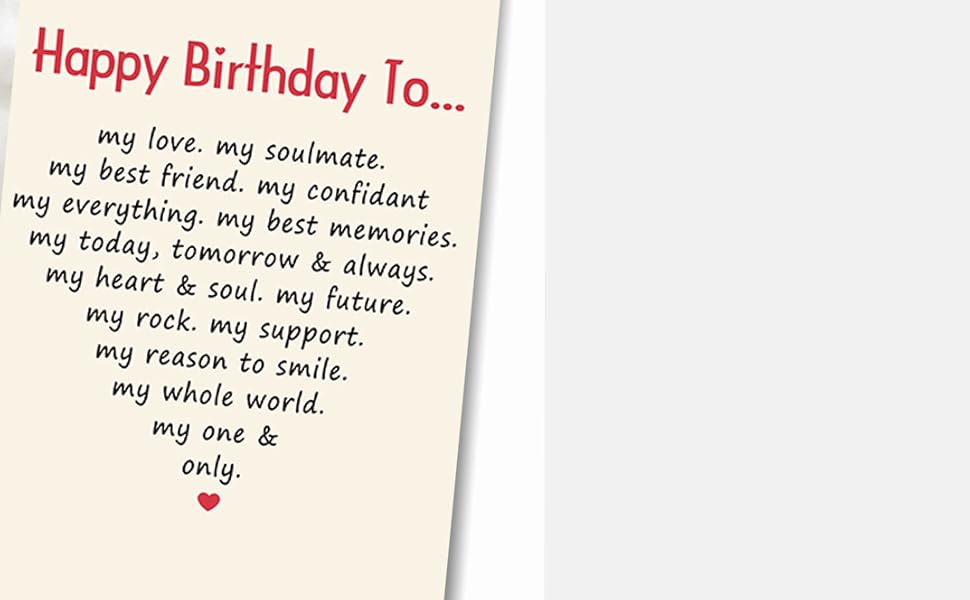 Happy Birthday To...
my love. my soulmate.
my best friend. my confidant
my everything. my best memories.
my today, tomorrow & always.
my heart & soul. my future.
my rock. my support.
my reason to smile.
my whole world.
my one &
only.